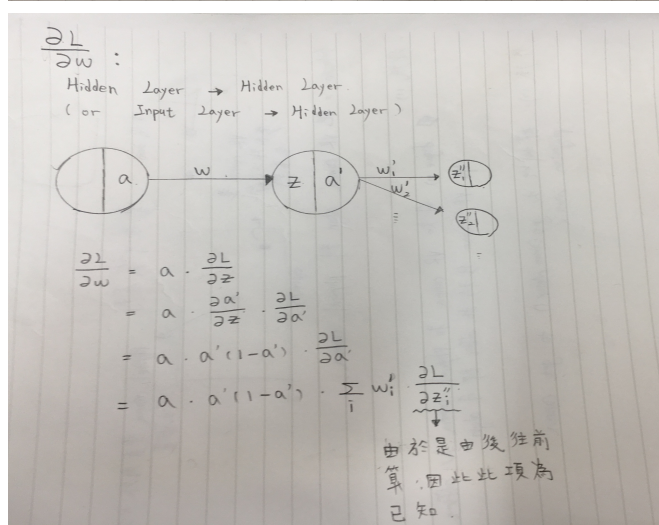 ∂L/∂w :
Hidden Layer → Hidden Layer.
( or Input Layer → Hidden Layer )
a w z a' w₁' z₁''
w₂' z₂''
∂L/∂w = a · ∂L/∂z
= a · ∂a'/∂z · ∂L/∂a'
= a · a'(1-a') · ∂L/∂a'
= a · a'(1-a') · Σᵢ wᵢ' · ∂L/∂zᵢ''
由於是由後往前
算.因此此項為
已知.